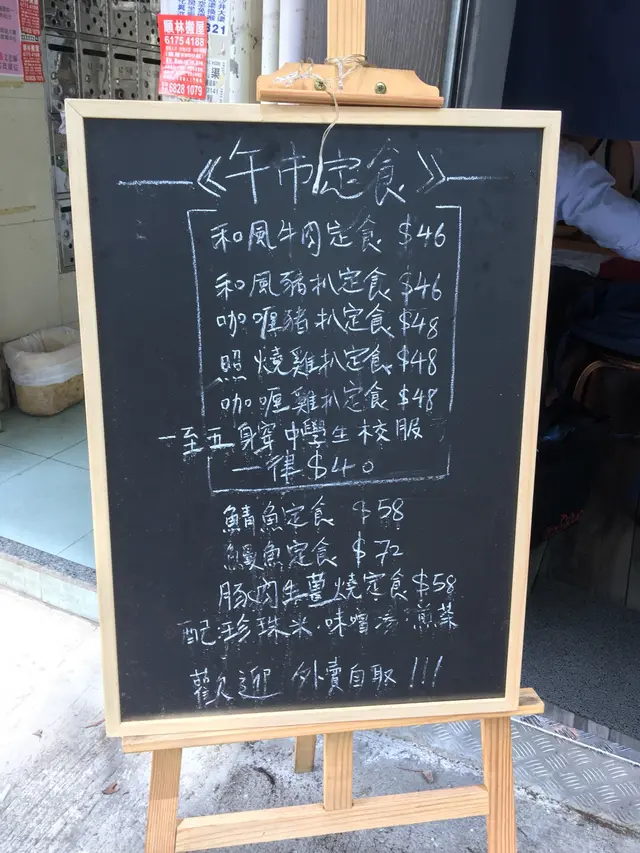 順林搬屋
6175 4188
6828 1079
《午市定食》
和風牛肉定食 $46
和風豬扒定食 $46
咖喱豬扒定食 $48
照燒雞扒定食 $48
咖喱雞扒定食 $48
一至五身穿中學生校服
一律 $40
鯖魚定食 $58
鰻魚定食 $72
豚肉生薑燒定食 $58
配:珍珠米.味噌湯.前菜
歡迎 外賣自取 !!!